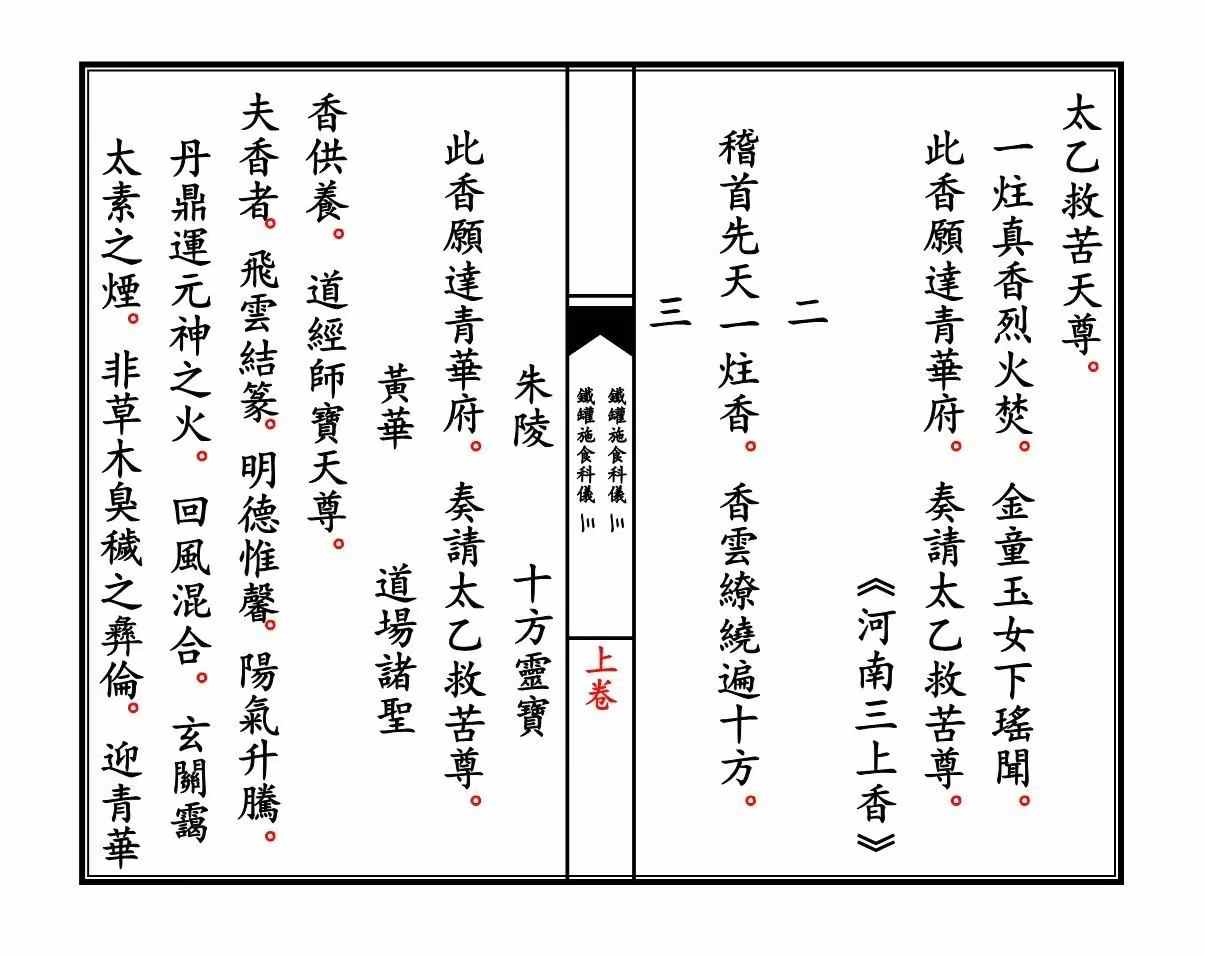 太乙救苦天尊。
一炷真香烈火焚。金童玉女下瑤聞。
此香願達青華府。奏請太乙救苦尊。
《河南三上香》
二
稽首先天一炷香。香雲繚繞遍十方。
三
鐵罐施食科儀 三
鐵罐施食科儀 三
上卷
朱陵 十方靈寶
此香願達青華府。奏請太乙救苦尊。
黃華 道場諸聖
香供養。道經師寶天尊。
夫香者。飛雲結篆。明德惟馨。陽氣升騰。
丹鼎運元神之火。回風混合。玄關靄
太素之煙。非草木臭穢之彝倫。迎青華